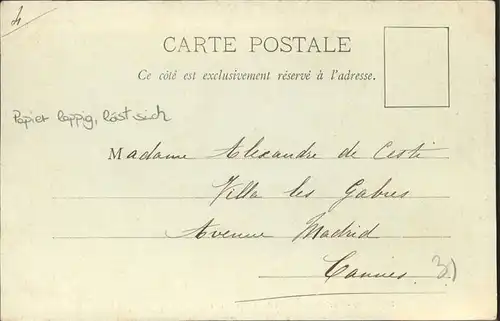 4
CARTE POSTALE
Ce côté est exclusivement réservé à l'adresse.
Papier lappig, löst sich
Madame Alexandre de Cesti
Villa les Gabres
Avenue Madrid
Cannes 3)